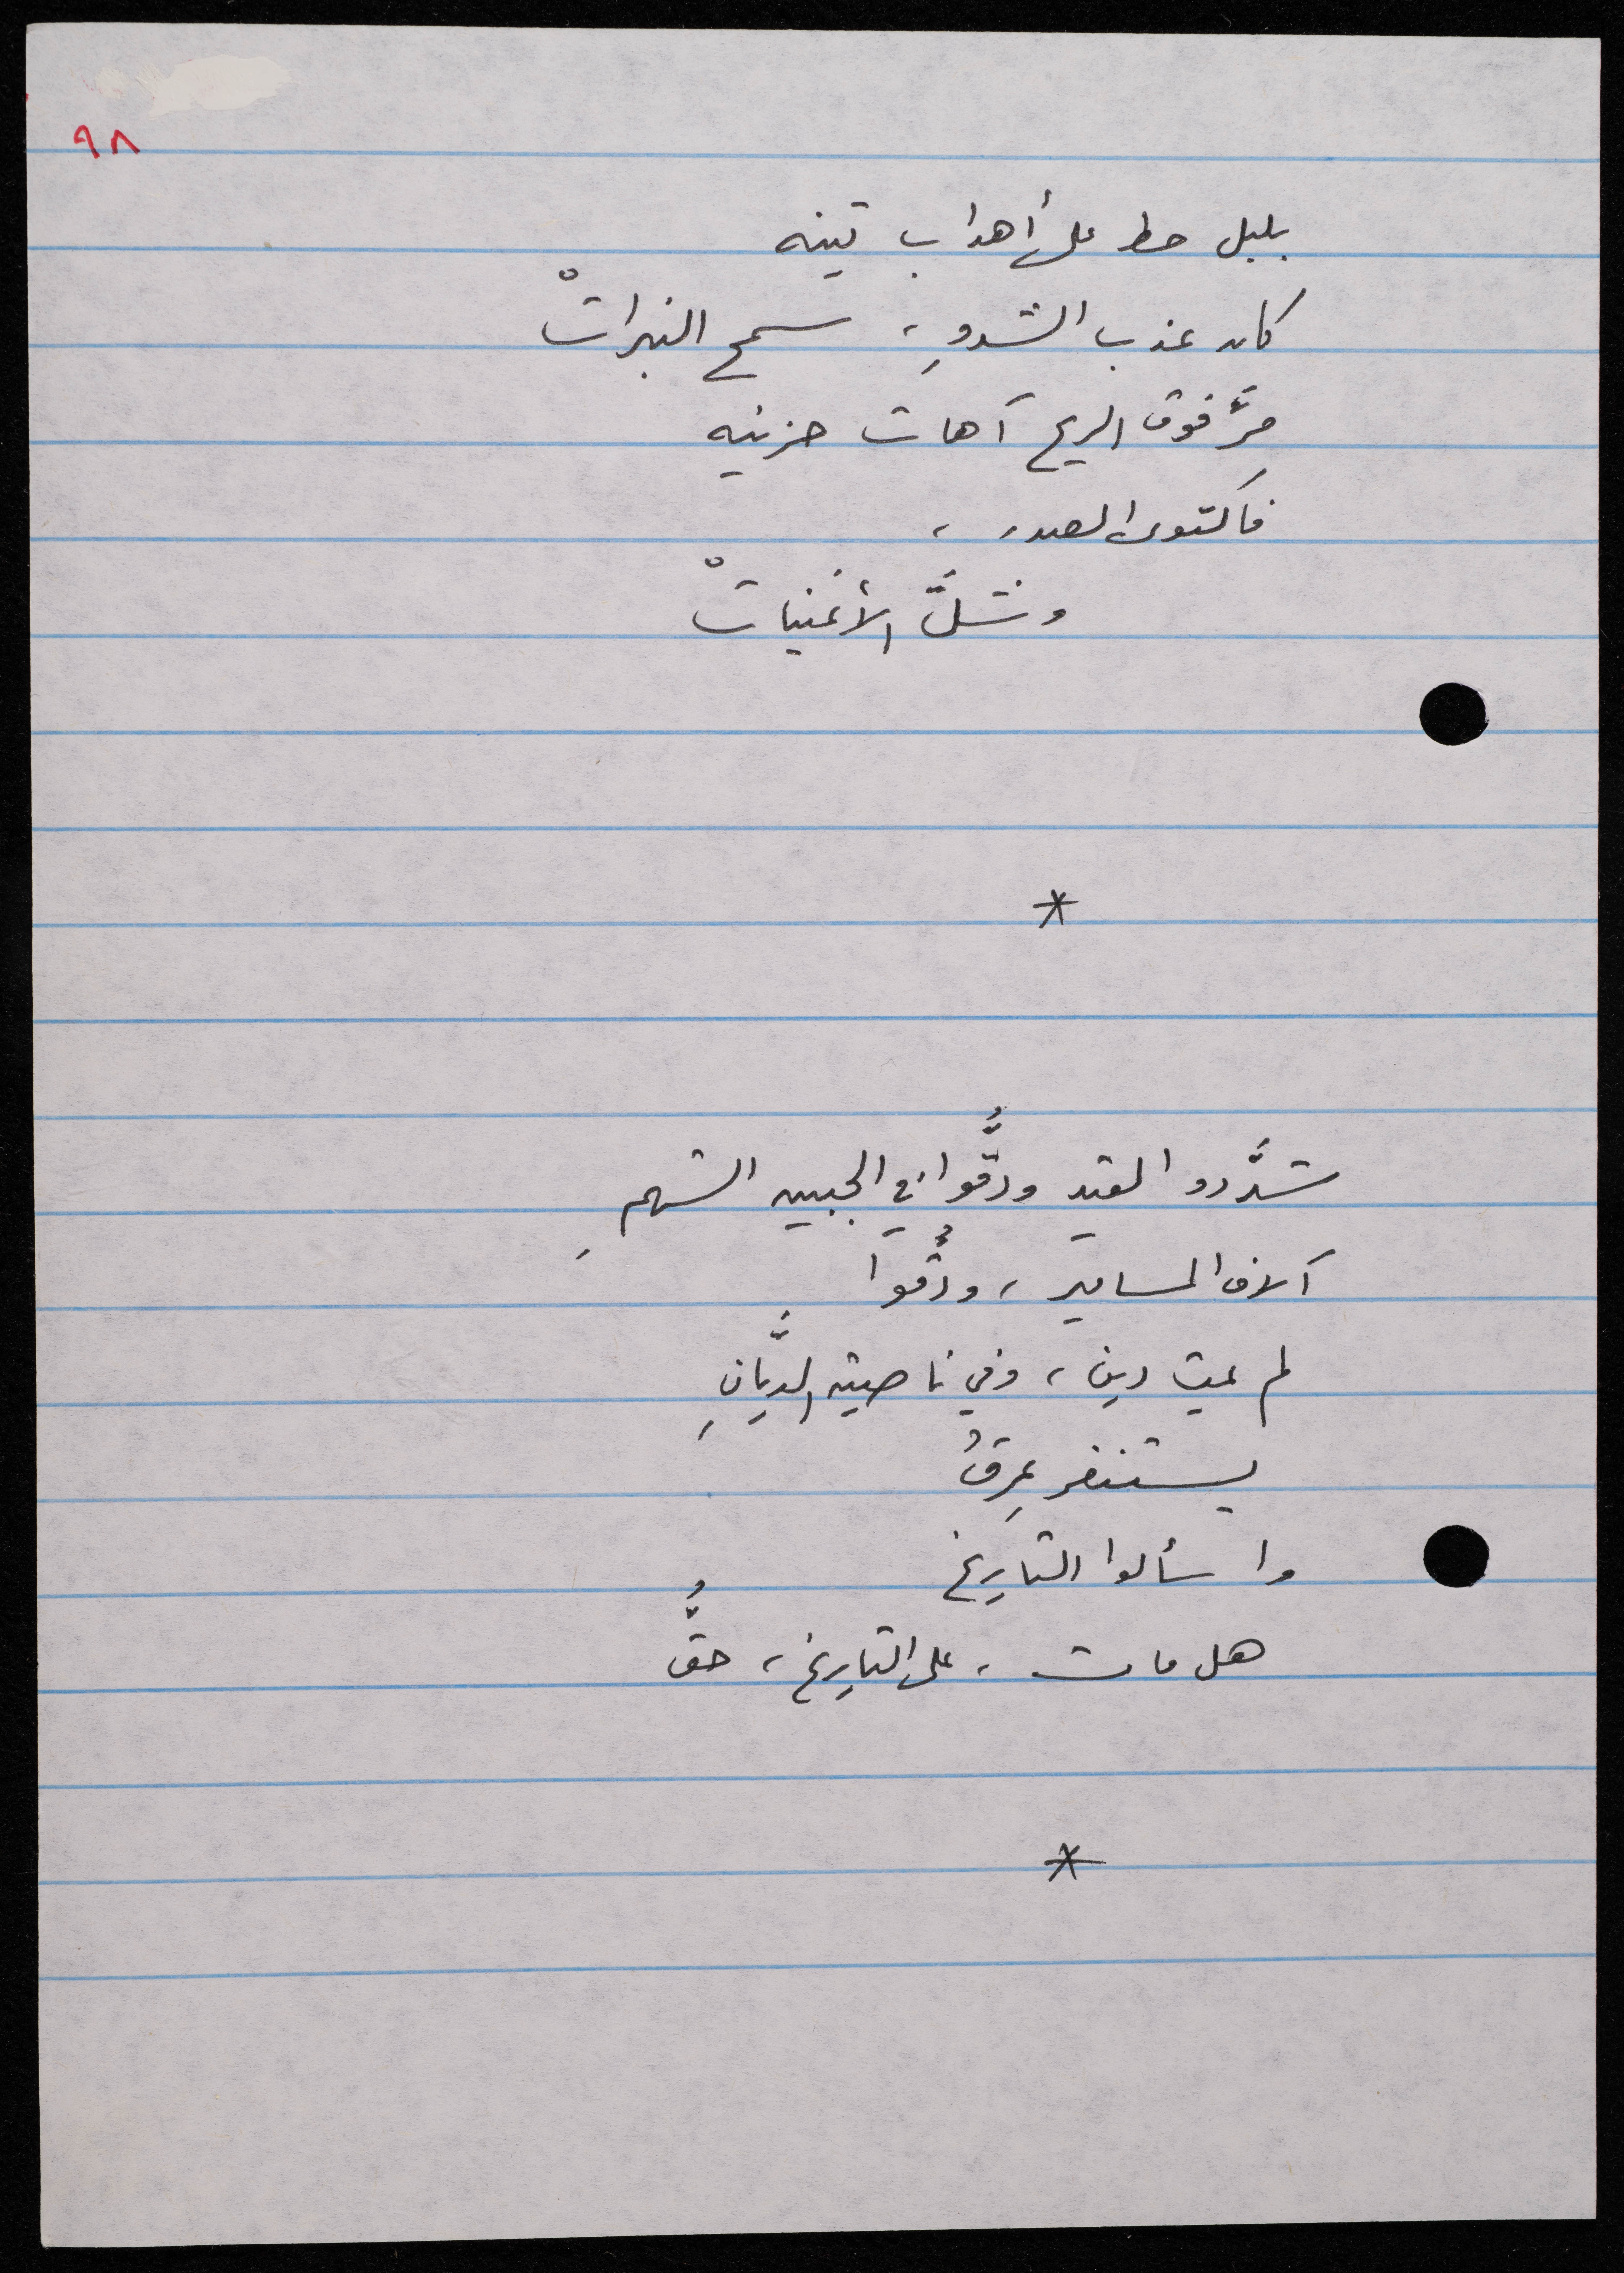 ٩٨
بلبل حط على أهداب تينه
كان عذب الشدوِ، سمح النبراتْ
مرَّ فوق الريح آهات حزينه
فاكتوى الصدر،
وشلَّ الأغنياتْ
*
شدَّدوا القيد ودقُّوا في الجبين الشهمِ
آلاف المسامير، ودُقُّوا
لم يمت دين، وفي ناصية الديَّانِ
يستنفر عِرقُ
واسألوا التاريخ
هل مات، على التاريخ، حقُّ
*